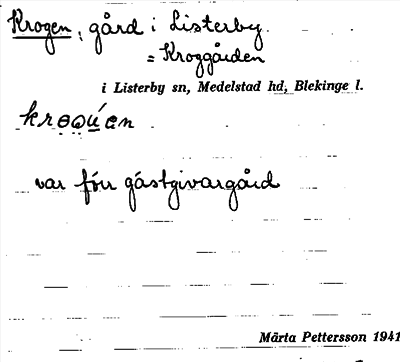 Krogen, gård i Listerby.
= Kroggården
i Listerby sn, Medelstad hd, Blekinge l.
var förr gästgivargård
Märta Pettersson 1941